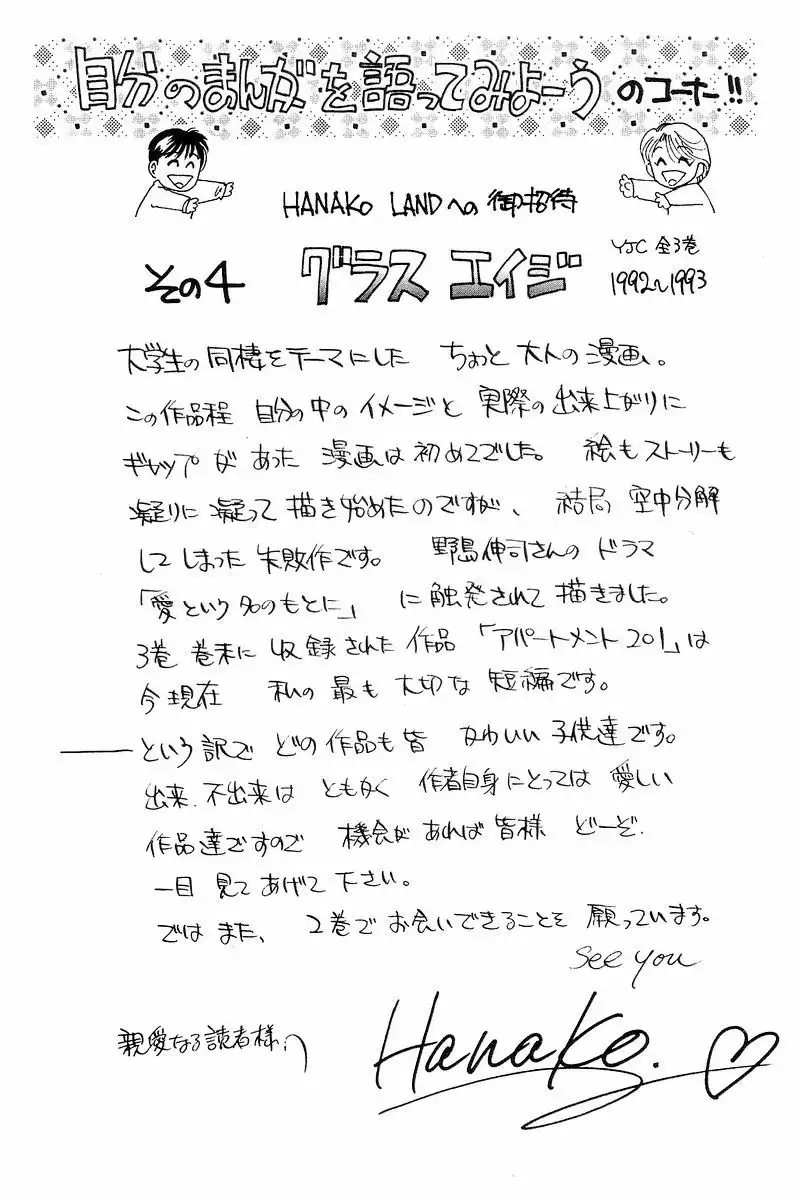 自分のまんがを語ってみよーうのコーナー!!
HANAKO LANDへの御招待
その4 グラス エイジ YJC 全3巻 1992〜1993
大学生の同棲をテーマにした ちょっと大人の漫画。
この作品程 自分の中のイメージと 実際の出来上がりに
ギャップが あった 漫画は初めてでした。 絵もストーリーも
凝りに凝って描き始めたのですが、 結局 空中分解
してしまった 失敗作です。 野島伸司さんの ドラマ
「愛という名のもとに」 に触発されて描きました。
3巻 巻末に 収録された 作品 「アパートメント201」は
今現在 私の 最も 大切な 短編です。
――という訳で どの作品も皆 かわいい子供達です。
出来、不出来は ともかく 作者自身にとっては 愛しい
作品達ですので 機会が あれば 皆様 どーぞ
一目 見て あげて 下さい。
では また、 2巻で お会いできることを 願っています。
See you
親愛なる読者様へ
Hanako.♡